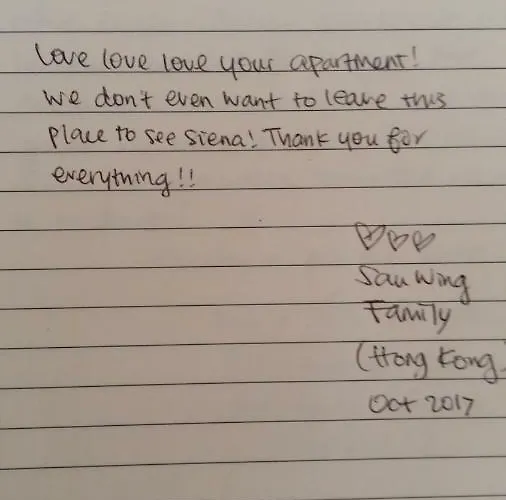 Love love love your apartment!
We don't even want to leave this
place to see Siena! Thank you for
everything!!
♡♡♡
Sau Wing
Family
(Hong Kong
Oct 2017